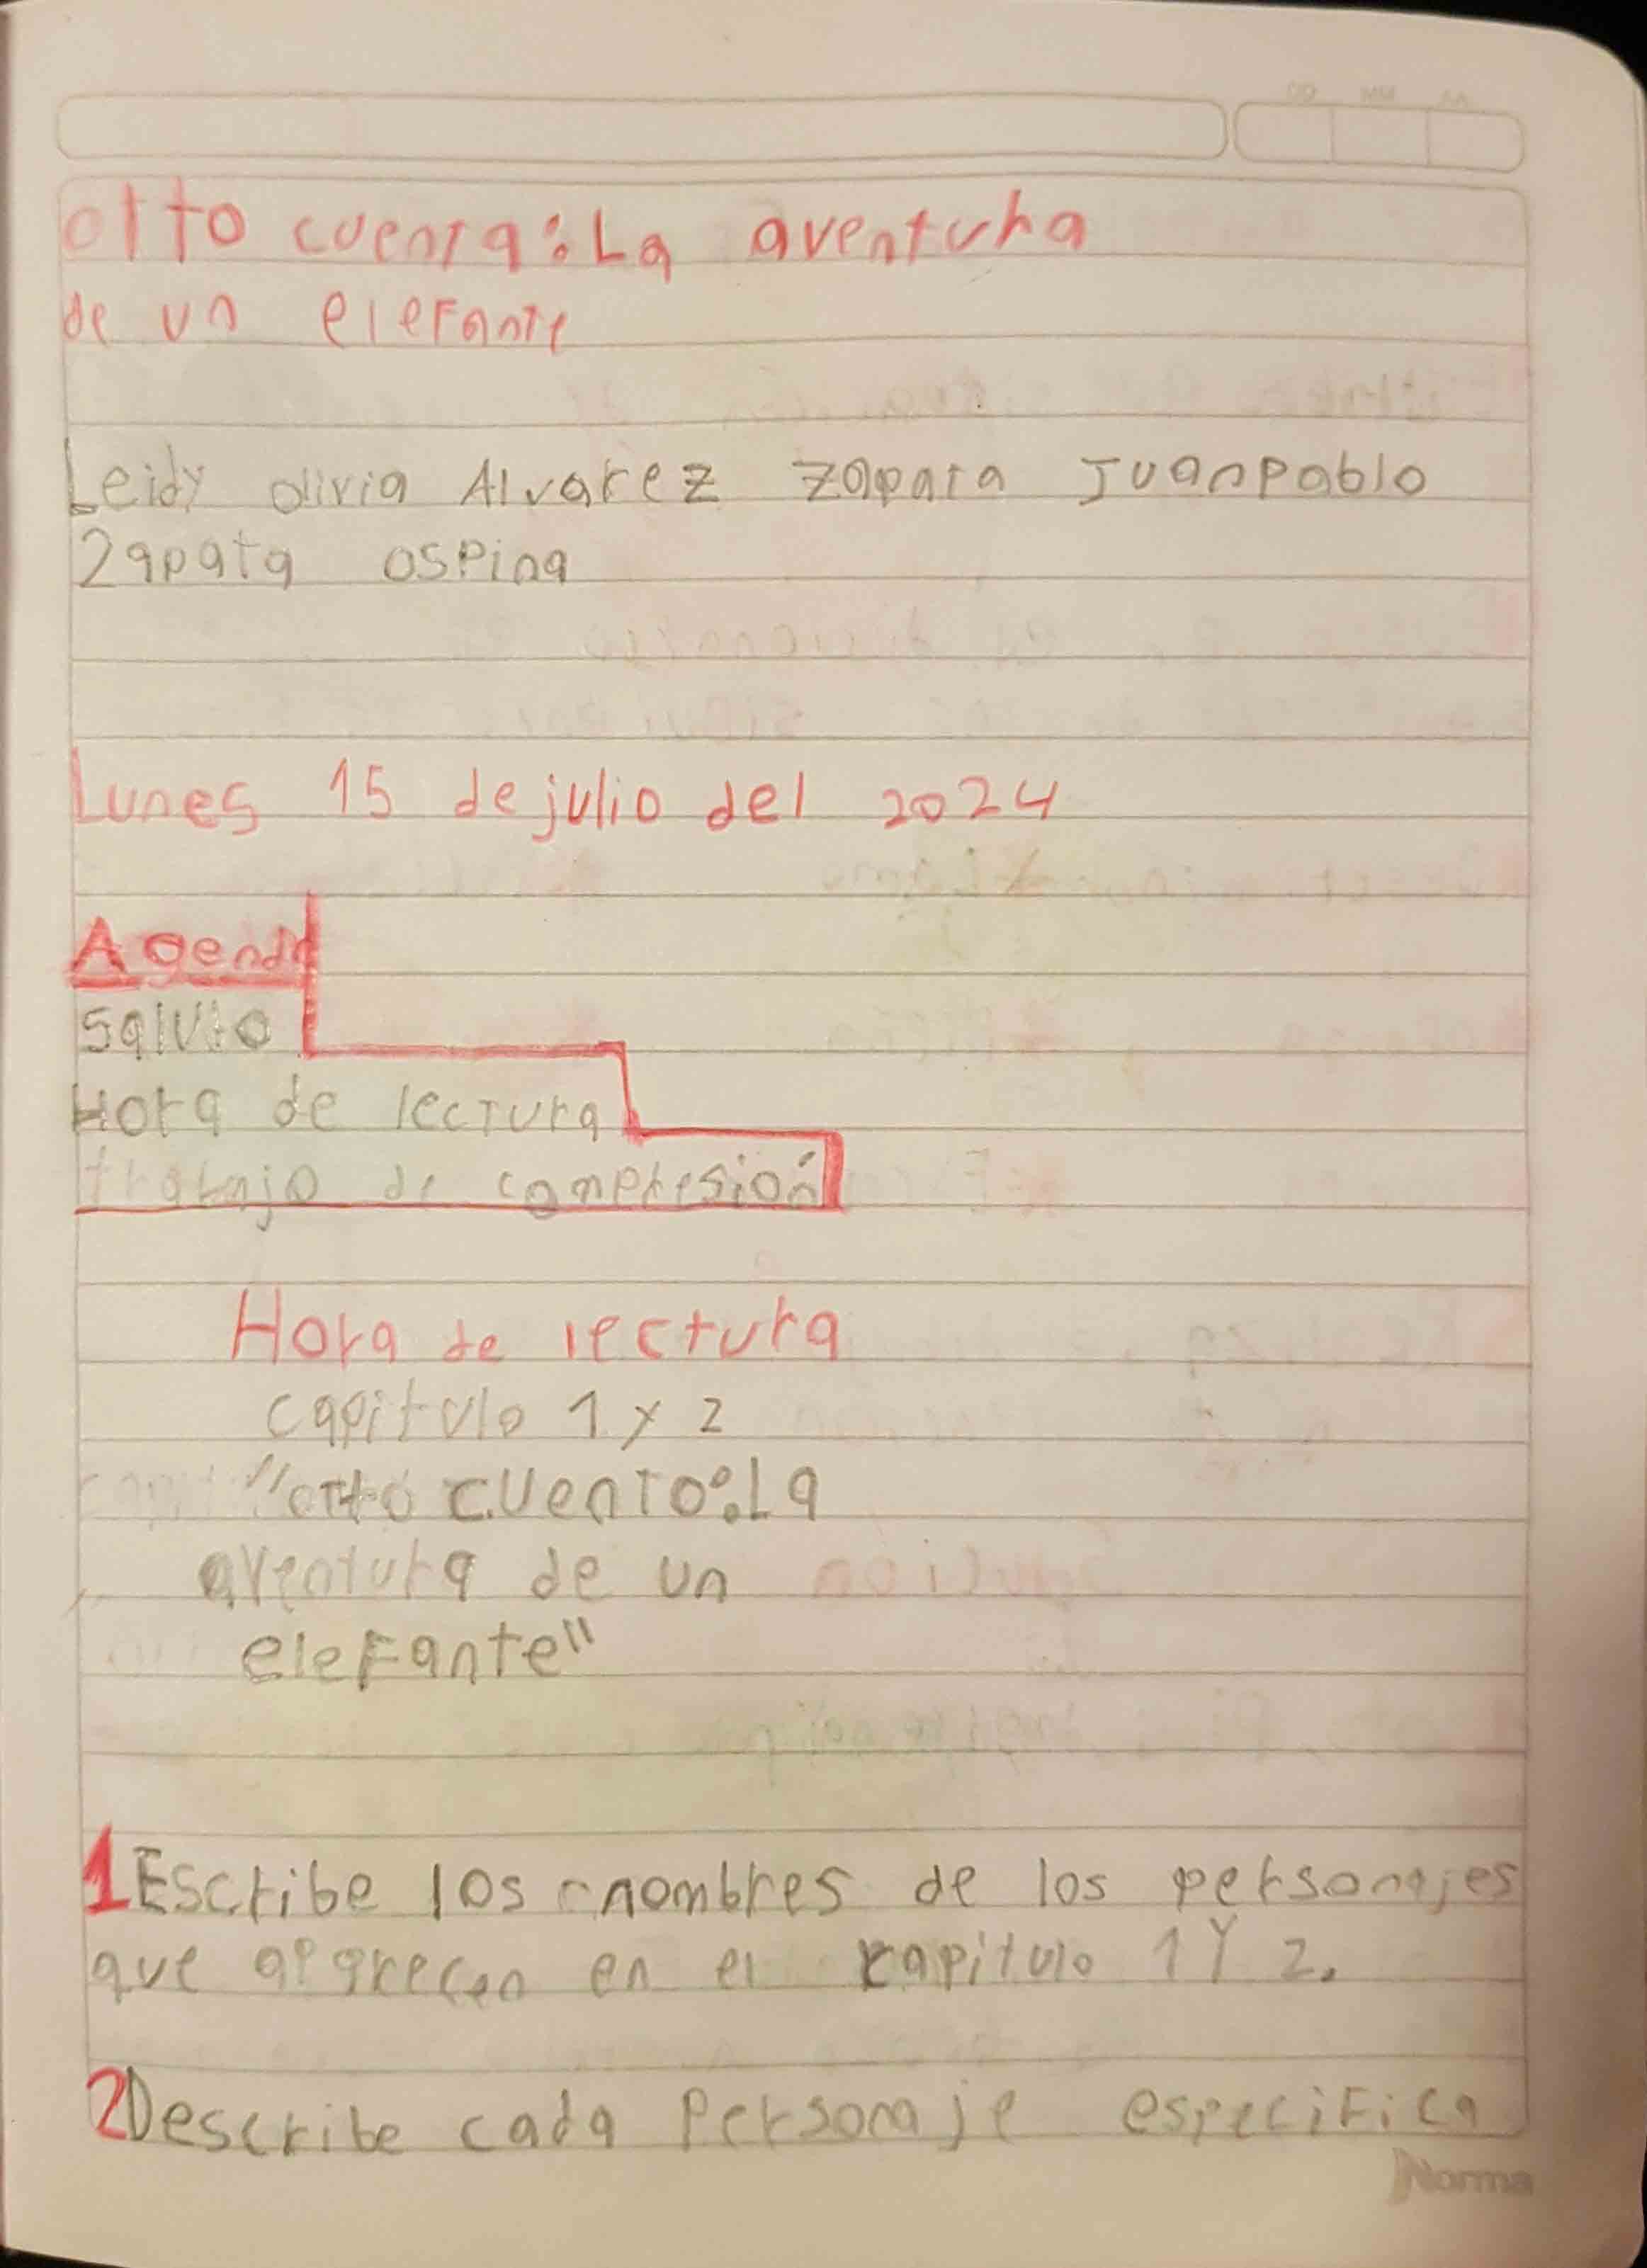 DD MM AA
otto cuenta: La aventura
de un elefante
Leidy olivia Alvarez Zapata Juanpablo
Zapata ospina
Lunes 15 de julio del 2024
Agenda
saluto
Hora de lectura
trabajo de compresión
Hora de lectura
capitulo 1 y 2
"otto cuento: La
aventura de un
elefante"
1 Escribe los nombres de los personajes
que aparecen en el capitulo 1 Y 2.
2 Describe cada Personaje especifica
Norma